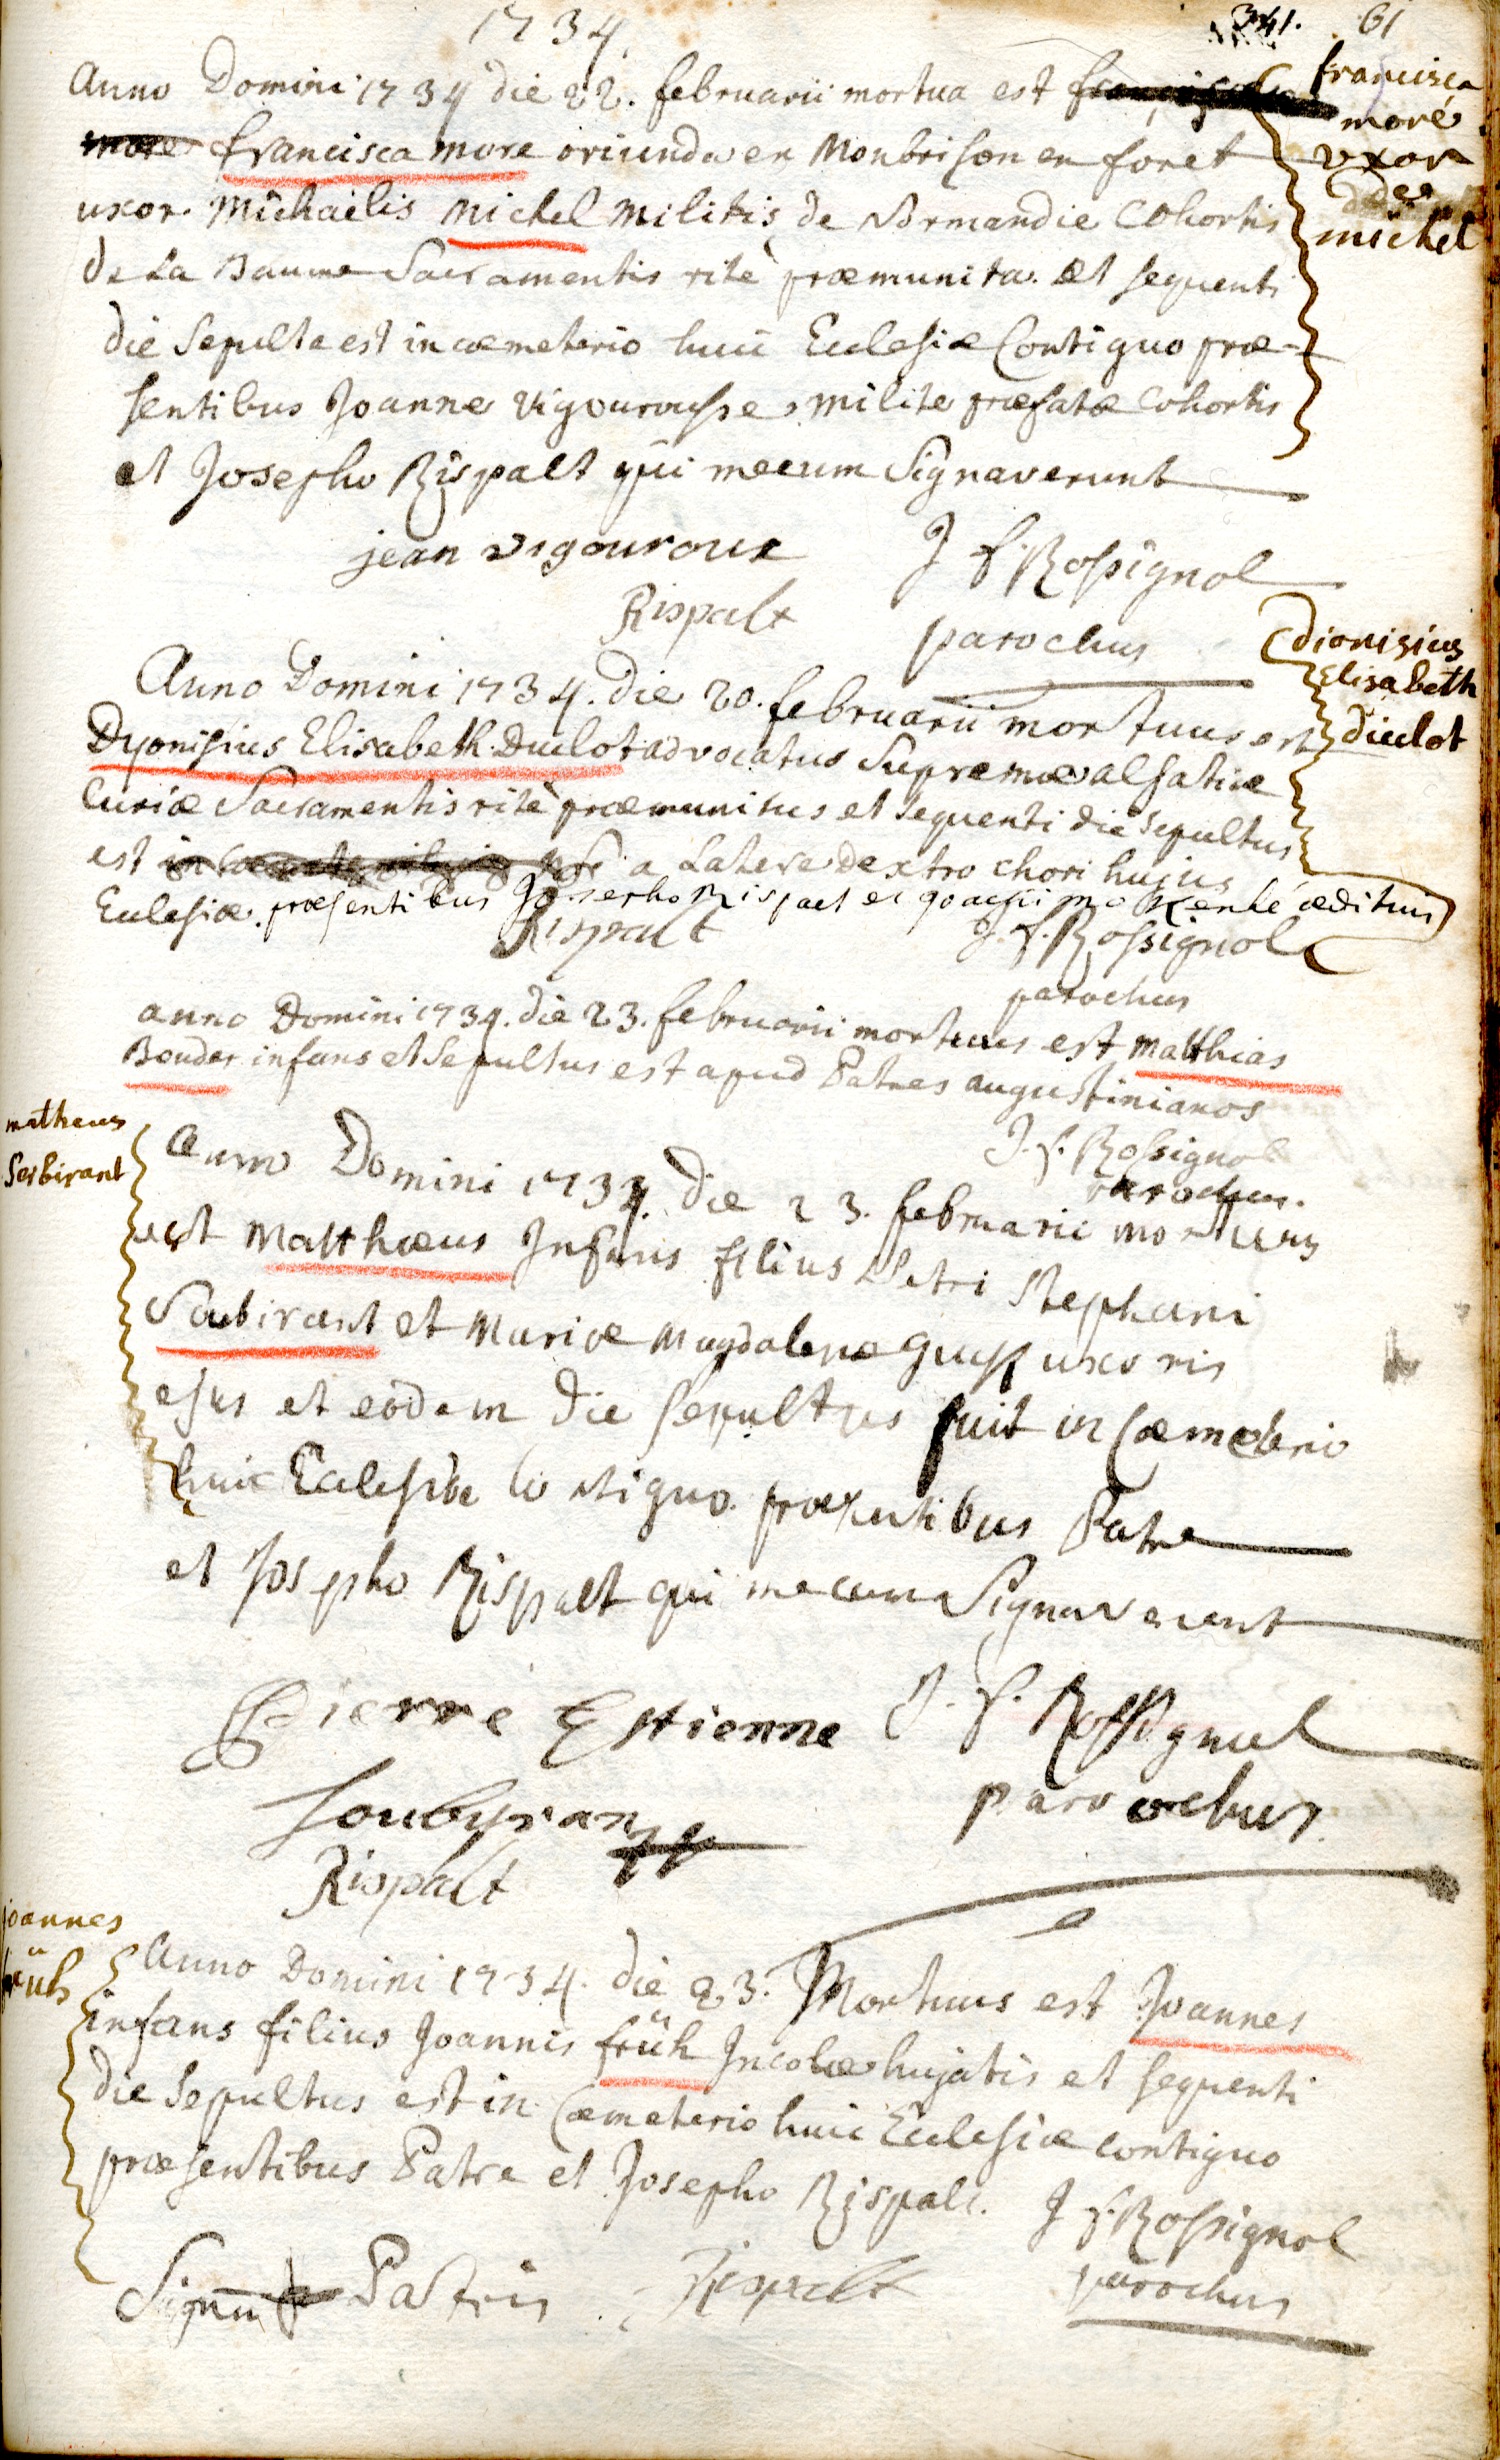 1734.
341. 61
Anno Domini 1734 die 22. februarii mortua est
francisca
moré
uxor
michel
more francisca more oriunda en Monbrison en foret
uxor Michaelis Michel militis de Normandie Cohortis
de La Baume Sacramentis rité præmunita. Et sequenti
die Sepulta est in cæmeterio huic Eclesiæ Contiguo præ-
sentibus Joanne Vigourousse milite præfatæ Cohortis
et Josepho Rispalt qui mecum Signaverunt
jean vigouroux J f Rossignol
Rispalt parochus
dionisius
Elisabeth
duclot
Anno Domini 1734. die 20. februarii mortuus est
Dyonisius Elisabeth Duclot advocatus Supremæ alsatiæ
Curiæ Sacramentis rité præmunitus et sequenti die Sepultus
est a Latere dextro chori hujus
Eclesiæ præsentibus Josepho Rispalt et æditui
Rispalt J. f. Rossignol
parochus
anno Domini 1734. die 23. februarii mortuus est Matthias
Bender infans et Sepultus est apud Patres augustinianos
J. f. Rossignol
parochus.
matheus
Serbirant
Anno Domini 1734. die 23. februarii mortuus
est Matthæus Infans filius Petri Stephani
Soubirant et Mariæ Magdalenæ uxoris
ejus et eodem die sepultus fuit in Cæmeterio
huic Eclesiæ Contiguo præsentibus Patre
et Josepho Rispalt qui mecum Signaverunt
Pierre Estienne J. f. Rossignol
Soubyran parochus
Rispalt
joannes
früh
Anno Domini 1734. die 23. Mortuus est Joannes
infans filius Joannis früh Incolæ hujatis et sequenti
die Sepultus est in Cæmeterio huic Eclesiæ contiguo
præsentibus Patre et Josepho Rispalt. J f. Rossignol
Signum Patris Rispalt parochus